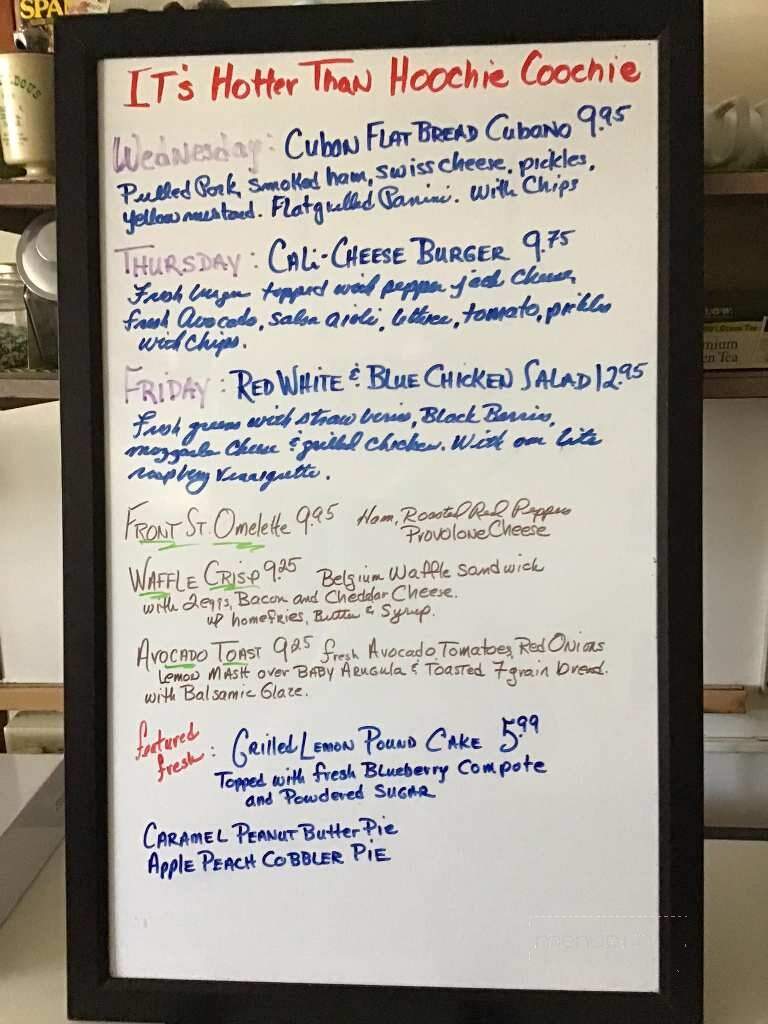 SPA
IT's Hotter Than Hoochie Coochie
Wednesday: Cubon Flat Bread Cubano 9.95
Pulled Pork, smoked ham, swiss cheese, pickles,
yellow mustard. Flat grilled Panini. with Chips
Thursday: Cali-Cheese Burger 9.75
Fresh burger topped with pepper jack cheese,
fresh Avocado, salsa aioli, lettuce, tomato, pickles
with Chips.
Friday: Red White & Blue Chicken Salad 12.95
Fresh greens with strawberries, Black Berries,
mozzarella Cheese & grilled chicken. With our lite
raspberry Vinaigrette.
Front St. Omelette 9.95 Ham, Roasted Red Peppers
Provolone Cheese
Waffle Crisp 9.25 Belgium Waffle sandwich
with 2 eggs, Bacon and Cheddar Cheese.
w/ homefries, Butter & Syrup.
Avocado Toast 9.25 fresh Avocado, Tomatoes, Red Onions
Lemon Mash over Baby Arugula & Toasted 7 grain bread.
with Balsamic Glaze.
featured
fresh: Grilled Lemon Pound Cake 5.99
Topped with fresh Blueberry Compote
and Powdered Sugar
Caramel Peanut Butter Pie
Apple Peach Cobbler Pie